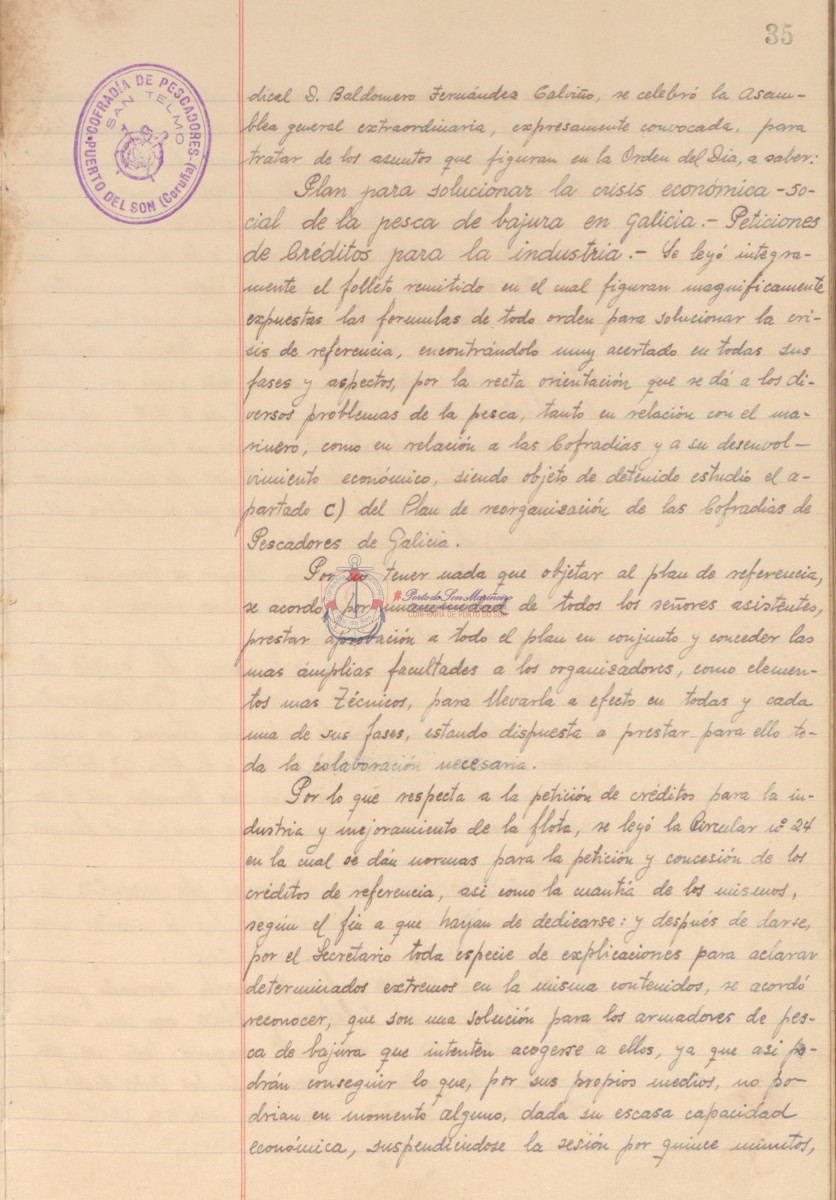 35
COFRADÍA DE PESCADORES
SAN TELMO
PUERTO DEL SON (Coruña)
dical D. Baldomero Fernández Galviño, se celebró la Asam-
blea general extraordinaria, expresamente convocada, para
tratar de los asuntos que figuran en la Orden del Día, a saber:
Plan para solucionar la crisis económica-so-
cial de la pesca de bajura en Galicia.- Peticiones
de Créditos para la industria.- Se leyó integra-
mente el folleto remitido en el cual figuran magnificamente
expuestas las formulas de todo orden para solucionar la cri-
sis de referencia, encontrándolo muy acertado en todas sus
fases y aspectos, por la recta orientación que se dá a los di-
versos problemas de la pesca, tanto en relación con el ma-
rinero, como en relación a las Cofradias y a su desenvol-
vimiento económico, siendo objeto de detenido estudio el a-
partado C) del Plan de reorganización de las Cofradias de
Pescadores de Galicia.
Por no tener nada que objetar al plan de referencia,
se acordó por unanimidad de todos los señores asistentes,
Porto do Son Mariñeiro
COFRADÍA DE PORTO DO SON
prestar aprobación a todo el plan en conjunto y conceder las
mas ámplias facultades a los organizadores, como elemen-
tos mas Técnicos, para llevarla a efecto en todas y cada
una de sus fases, estando dispuesta a prestar para ello to-
da la colaboración necesaria.
Por lo que respecta a la petición de créditos para la in-
dustria y mejoramiento de la flota, se leyó la Circular nº 24
en la cual se dán normas para la petición y concesión de los
créditos de referencia, asi como la cuantía de los mismos,
según el fin a que hayan de dedicarse: y después de darse,
por el Secretario toda especie de explicaciones para aclarar
determinados extremos en la misma contenidos, se acordó
reconocer, que son una solución para los armadores de pes-
ca de bajura que intenten acogerse a ellos, ya que asi po-
drán conseguir lo que, por sus propios medios, no po-
drian en momento alguno, dada su escasa capacidad
económica, suspendiéndose la sesión por quince minutos,